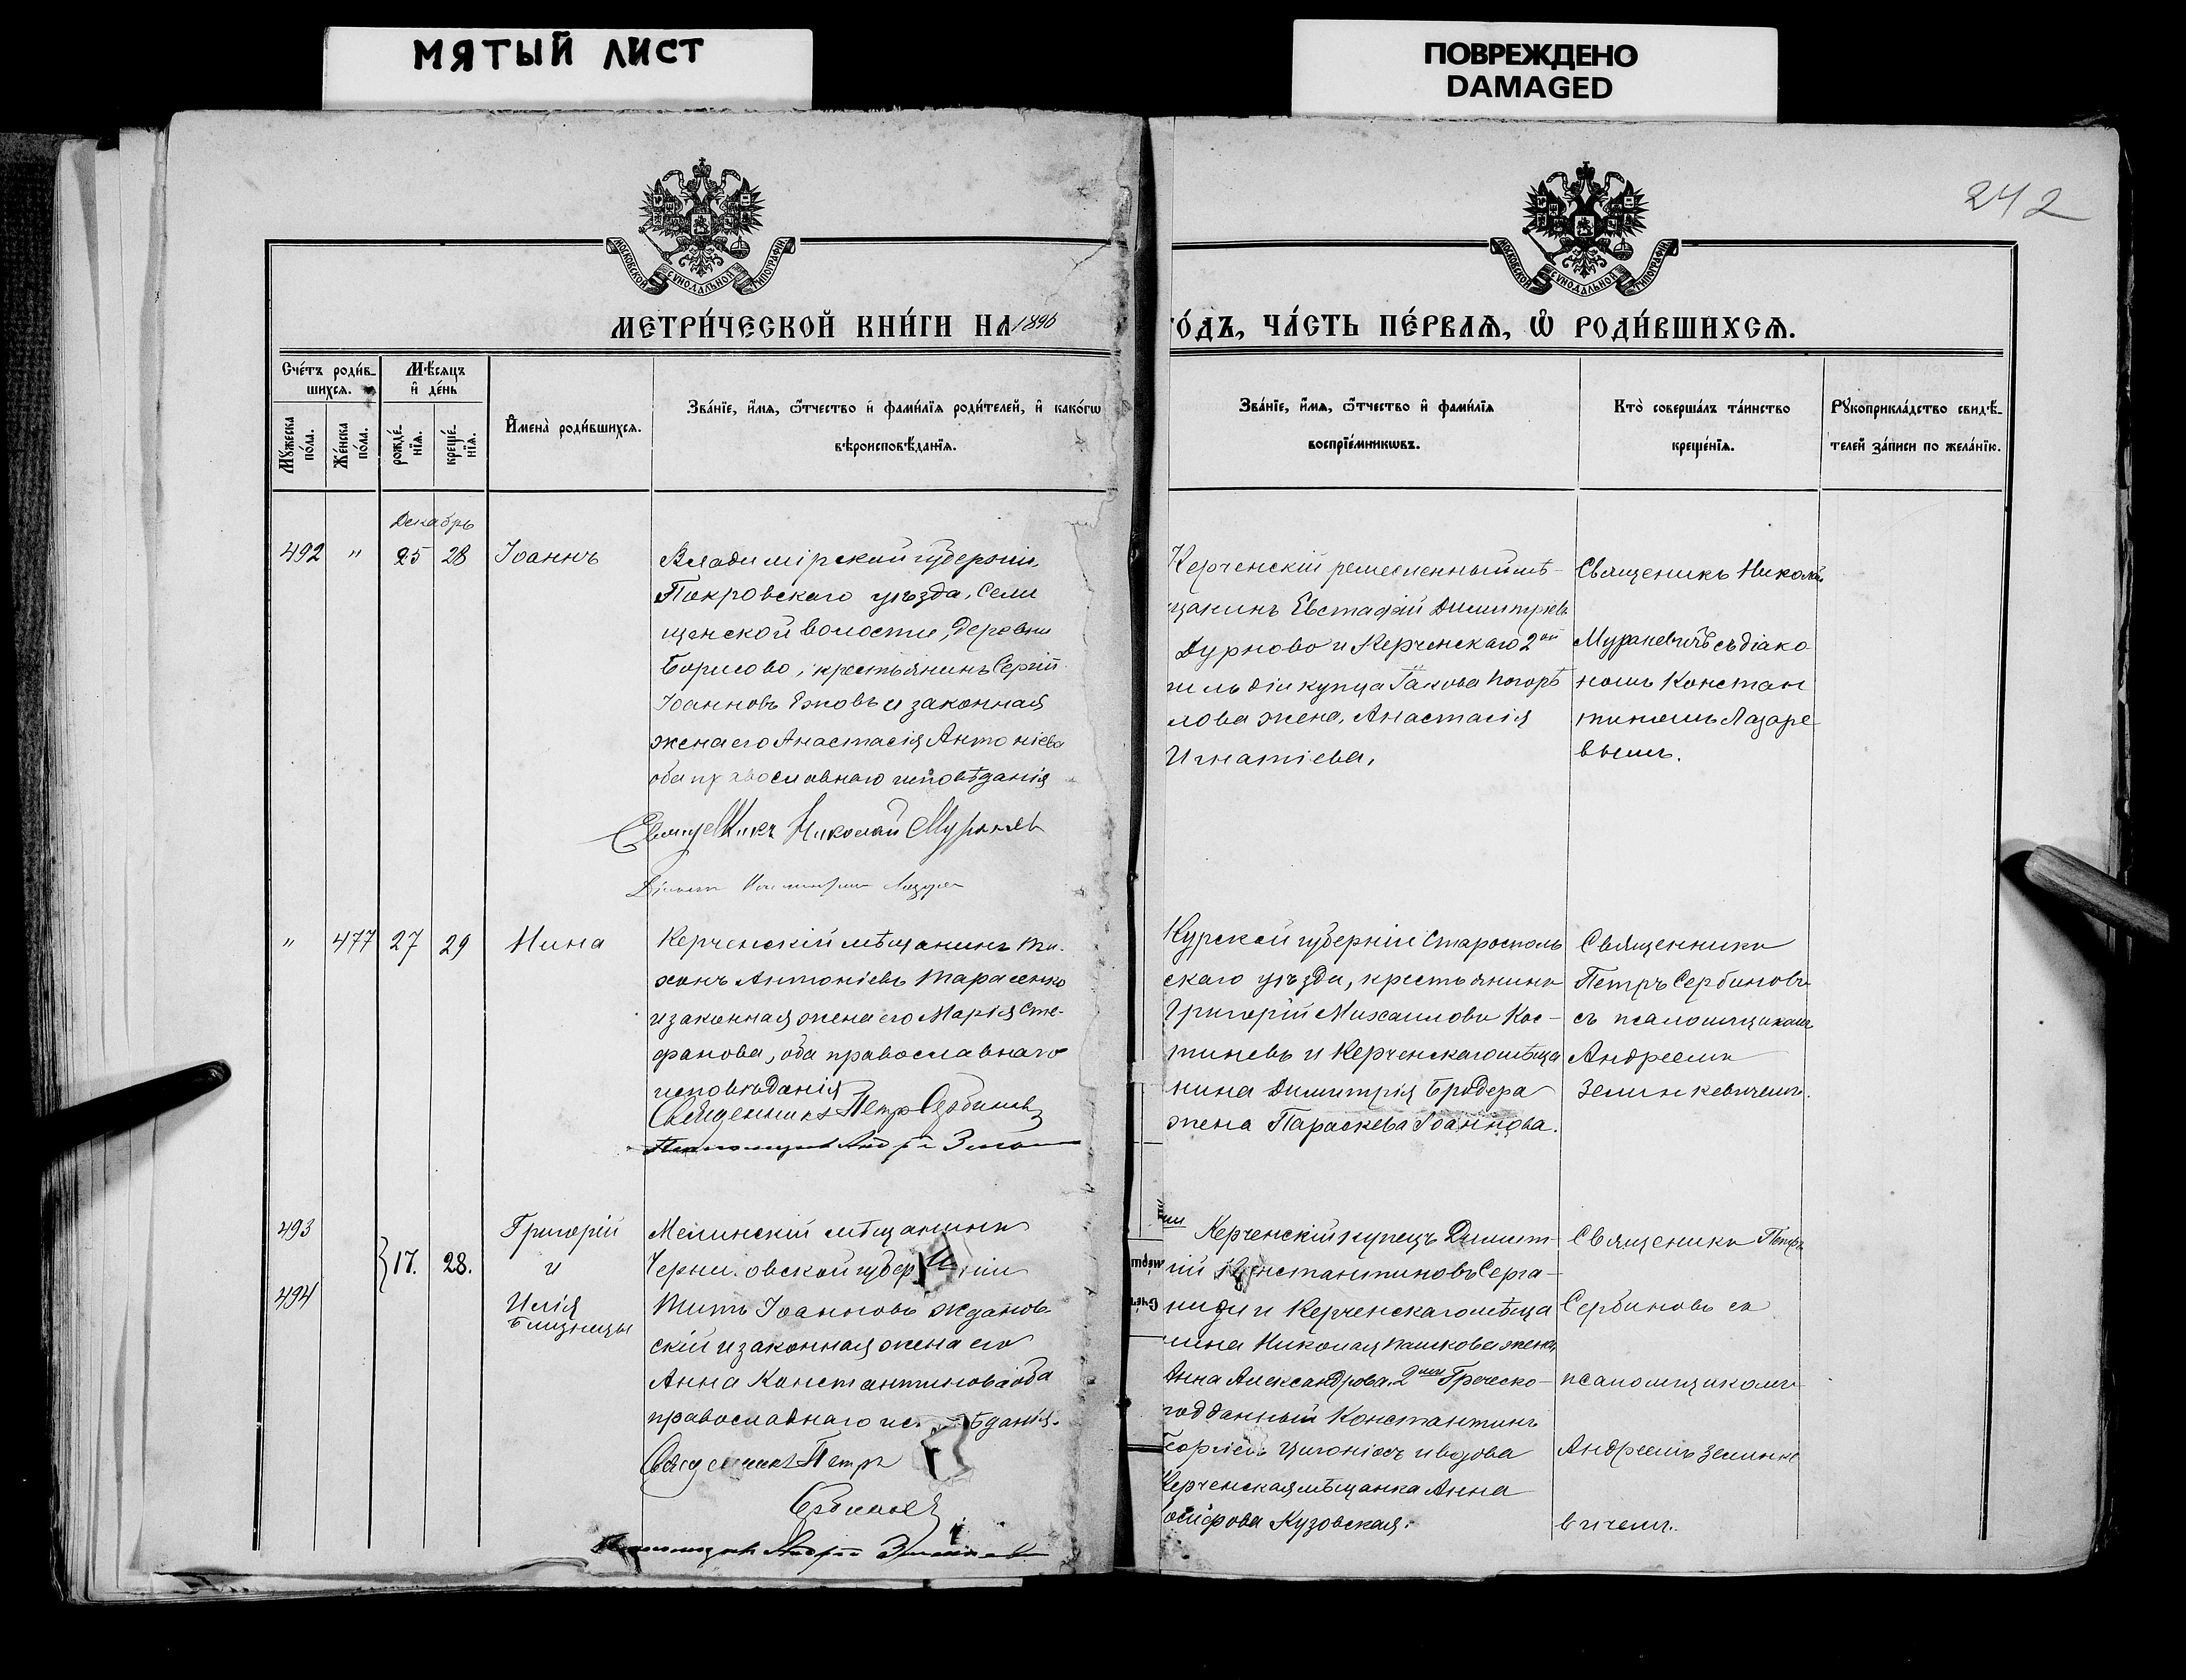 МЯТЫЙ ЛИСТ
ПОВРЕЖДЕНО
DAMAGED
242
МОСКОВСКОЙ СѴНОДАЛЬНОЙ ТИПОГРАФІИ
МОСКОВСКОЙ СѴНОДАЛЬНОЙ ТИПОГРАФІИ
МЕТРИ́ЧЕСКОЙ КНИ́ГИ НА 1896
ГО́ДЪ, ЧА́СТЬ ПЕ́РВАЯ, Ѡ РОДИ́ВШИХСЯ.
Сче́тъ роди́в-
шихся.
Му́жеска по́ла.
Же́нска по́ла.
Мѣ́сяцъ
и де́нь
рожде́-
нїя.
креще́-
нїя.
Имена̀ роди́вшихся.
Зва́нїе, и́мя, ѻ́тчество и фами́лїя роди́телей, и како́гѡ
вѣроисповѣ́данїя.
Зва́нїе, и́мя, ѻ́тчество и фами́лїя
воспрїе́мникѡвъ.
Кто̀ соверша́лъ та́инство
креще́нїя.
Рꙋкоприкла́дство свидѣ́-
телей за́писи по жела́нїю.
Декабрь
492 " 25 28 Іоаннъ
Владимірской губерніи,
Покровскаго уѣзда, Сели
щенской волости, деревни
Борисово, крестьянинъ Сергій
Іоанновъ Ежовъ и законная
жена его Анастасія Антоніева
оба православнаго исповѣданія
Священникъ Николай
Діаконъ
Керченскій ремесленный мѣ-
щанинъ Евстафій Димитріевъ
Дурново и Керченскаго 2ой
гильдіи купца Іакова Погорѣ
лова жена, Анастасія
Игнатіева,
Священикъ Николай
Мураневичъ съ діако
номъ Констан
тиномъ Лазаре
вымъ.
" 477 27 29 Нина
Керченскій мѣщанинъ Ти-
хонъ Антоніевъ Тарасенко
и законная жена его Марія Сте-
фанова, оба православнаго
исповѣданія
Священникъ Петръ Сербиновъ
Псаломщикъ Андрей
Курской губерніи Старооскол
скаго уѣзда, крестьянинъ
Григорій Михаиловъ Кос-
тиневъ и Керченскаго мѣща
нина Димитрія Бродера
жена Параскева Іоаннова.
Священникъ
Петръ Сербиновъ
съ псаломщикомъ
Андреемъ
Зелинкевичемъ.
493
494
17. 28.
Григорій
и
Илія
близнецы
мѣщанинъ
Черни овской губерніи
Титъ Іоанновъ Жданов
скій и законная жена его
Анна Константинова оба
православнаго ис ѣданія.
Священникъ Петръ
Сербиновъ
Псаломщикъ Андрей
Керченскій купецъ Димит-
рій Константиновъ Серга-
ниди и Керченскаго мѣща
нина Николая Пашкова жена
Анна Александрова. 2ми Греческо-
подданный Константинъ
Георгіевъ и вдова
Керченская мѣщанка Анна
Осифова Кузовская.
Священикъ Петръ
Сербиновъ съ
псаломщикомъ
Андреемъ Зелинке
вичемъ.